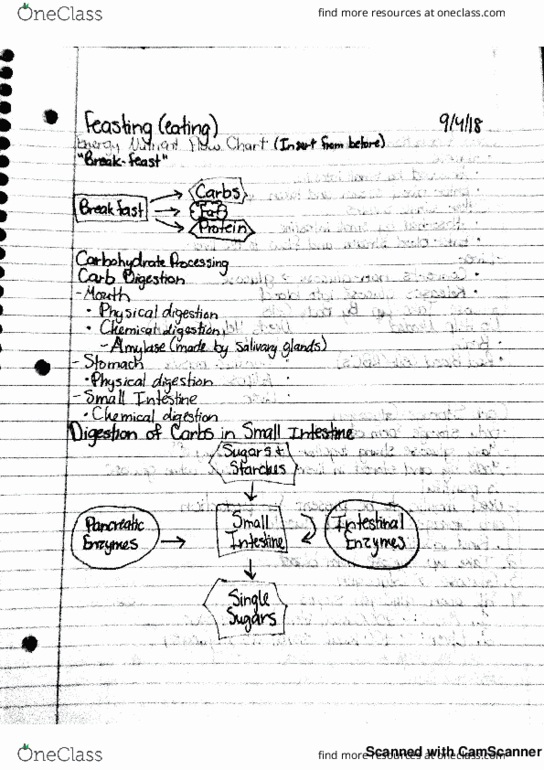 OneClass
find more resources at oneclass.com
Feasting (eating)
9/4/18
Energy Nutrient Flow Chart (Insert from before)
"Break-feast"
Breakfast
Carbs
Fat
Protein
Carbohydrate Processing
Carb Digestion
- Mouth
• Physical digestion
• Chemical digestion
- Amylase (made by salivary glands)
- Stomach
• Physical digestion
- Small Intestine
• Chemical digestion
Digestion of Carbs in Small Intestine
Sugars +
Starches
Pancreatic
Enzymes
Small
Intestine
Intestinal
Enzymes
Single
Sugars
OneClass
find more resources at oneclass.com
Scanned with CamScanner